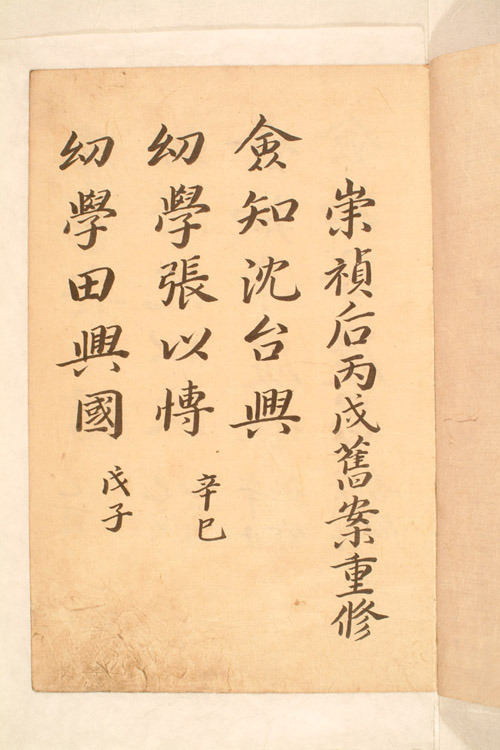 崇禎后丙戌舊案重修
僉知沈台興
幼學張以愽
辛巳
幼學田興國
戊子